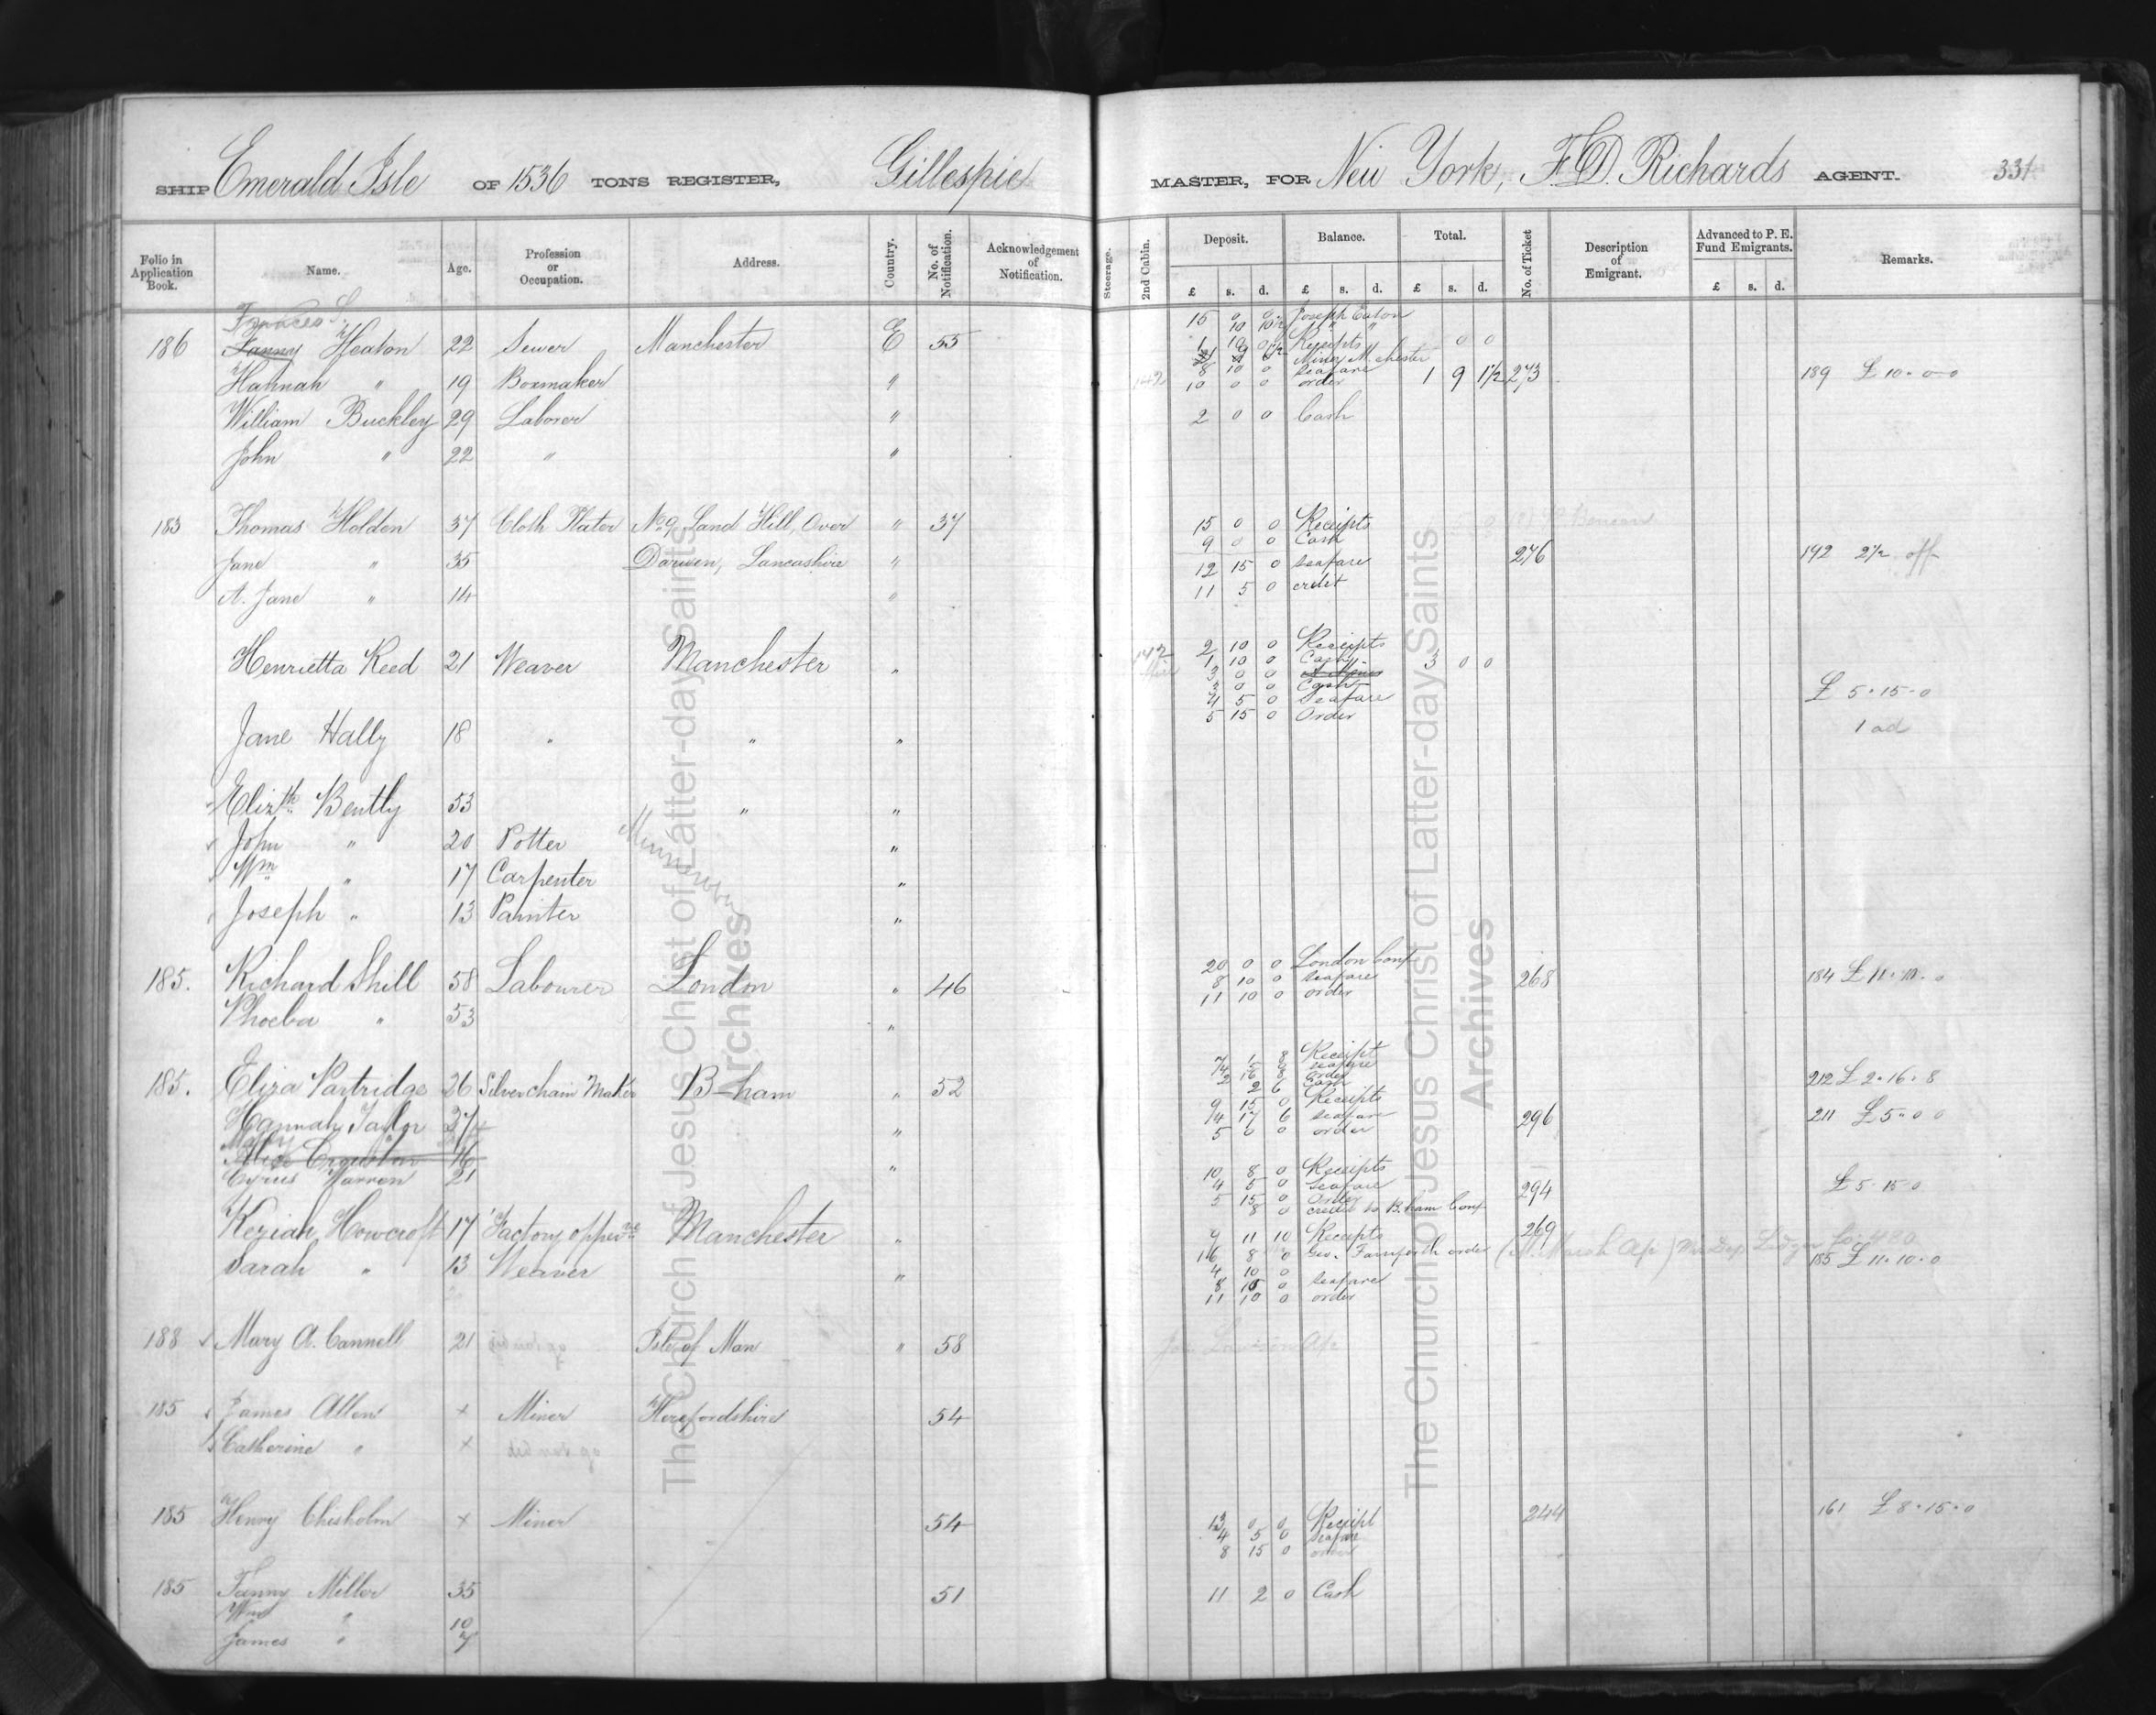 SHIP Emerald Isle OF 1536 TONS REGISTER, Gillespie MASTER, FOR New York, F.D. Richards AGENT. 331
Folio in Application Book. Name. Age. Profession or Occupation. Address. Country. No. of Notification. Acknowledgement of Notification. Steerage. 2nd Cabin. Deposit. Balance. Total. No. of Ticket Description of Emigrant. Advanced to P. E. Fund Emigrants. Remarks.
£ s. d. £ s. d. £ s. d. £ s. d.
Frances S. 15 0 0 Joseph Eaton
186 Fanny Heaton 22 Sewer Manchester E 55 Receipts 0 0
8 10 0 Seafare
Hannah " 19 Boxmaker " 10 0 0 order 1 9 1½ 273 189 £ 10-0-0
William Buckley 29 Laborer " 2 0 0 Cash
John " 22 " "
183 Thomas Holden 37 Cloth Plater No 9 Sand Hill, Over " 37 15 0 0 Receipts
9 0 0 Cash
Jane " 35 Darwen, Lancashire " 12 15 0 Seafare 276 192 2½ off
A. Jane " 14 " 11 5 0 order
2 10 0 Receipts
Henrietta Reed 21 Weaver Manchester " 142 1 10 0 Cash 3 0 0
3 0 0
3 0 0 Cash
4 5 0 Seafare £ 5-15-0
5 15 0 Order
Jane Hally 18 " " " 1 ad
Elizth Bently 53 " "
John " 20 Potter "
Wm " 17 Carpenter "
Joseph " 13 Painter "
20 0 0 London Conf
185. Richard Shill 58 Labourer London " 46 8 10 0 Seafare 268 184 £ 11-10-0
11 10 0 order
Phoeba " 53 "
7 1 8 Receipt
4 5 0 Seafare
185. Eliza Partridge 26 Silver chain Maker B-ham " 52 2 16 8 order 212 £ 2-16-8
2 6 Cash
9 15 0 Receipts
Hannah Taylor 27 " 4 17 6 Seafare 296 211 £ 5-0-0
5 0 0 order
Mary
Alice 16 " 10 8 0 Receipts
Cyrus Warren 21 4 5 0 Seafare 294 £ 5-15-0
5 15 0 Order
8 0 credit to B.ham Conf
Keziah Howcroft 17 Factory opperve Manchester " 9 11 10 Receipts 269
16 8 0 Geo. Farnforth order
Sarah " 13 Weaver " 4 10 0 185 £ 11-10-0
8 10 0 Seafare
11 10 0 order
188 Mary A. Cannell 21 Isle of Man " 58
185 James Allen x Miner Herefordshire 54
Catherine " x
185 Henry Chisholm x Miner 54 13 0 0 Receipt 244 161 £ 8-15-0
4 5 0 Seafare
8 15 0 order
185 Fanny Miller 35 51 11 2 0 Cash
Wm " 10
James " 7
The Church of Jesus Christ of Latter-day Saints
Archives
The Church of Jesus Christ of Latter-day Saints
Archives